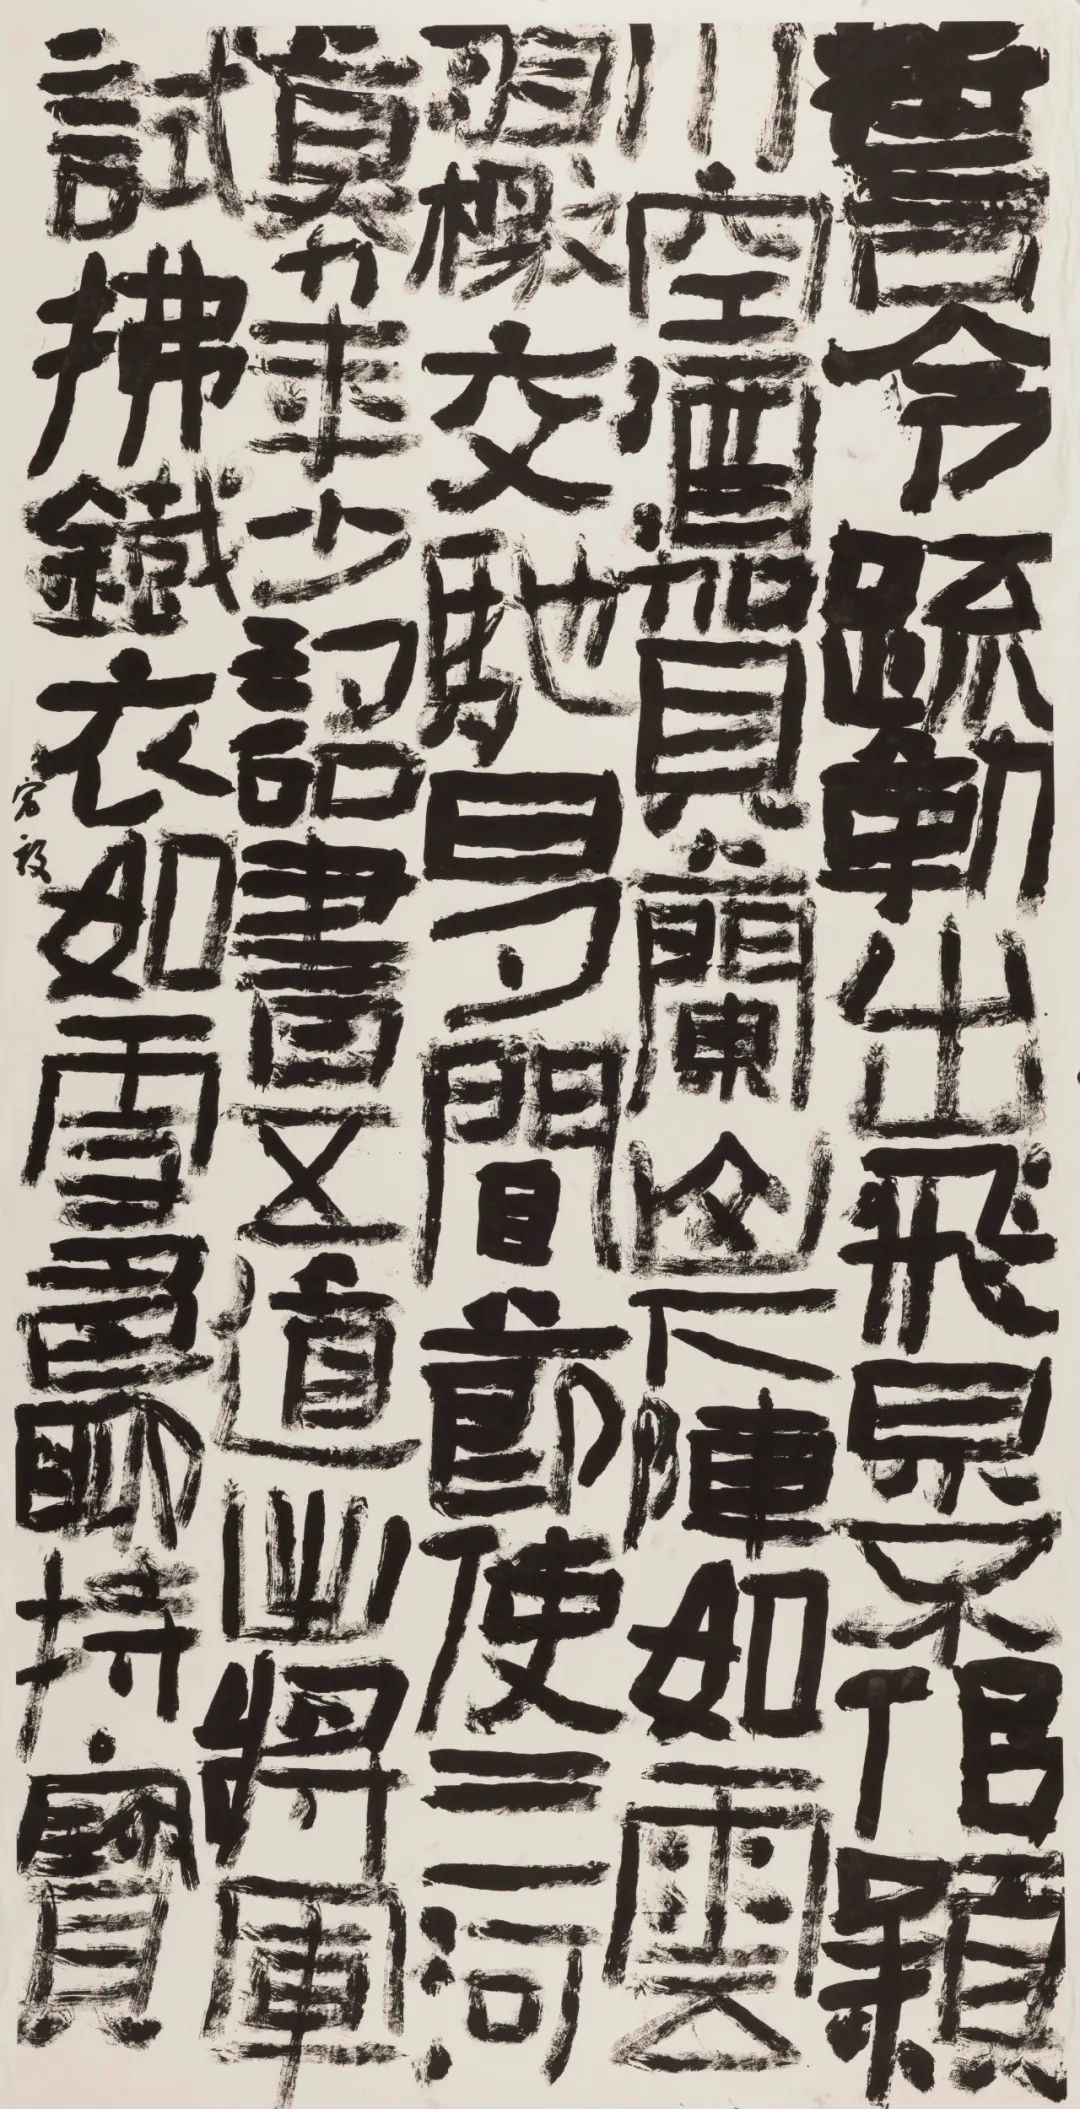 誓令疏勒出飛泉不佀穎
川空酒賀蘭山下陣如雲
羽檄交馳日夕聞節使三河
募年少詔書五道出將軍
試拂鐵衣如雪色聊持寶